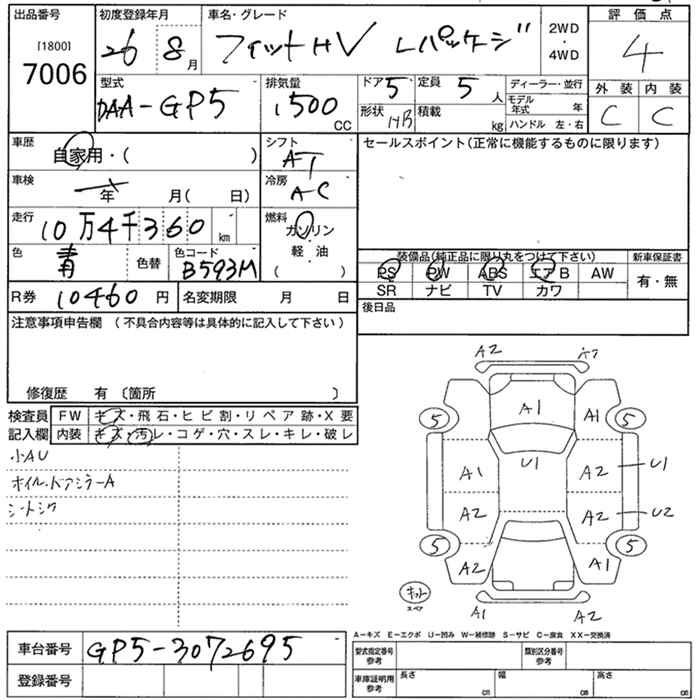 出品番号 初度登録年月 車名・グレード 評価点
[1800] 7006 26 8月 フィットHV Lパッケージ 2WD・4WD 4
型式 排気量 ドア 5 定員 5人 ディーラー・並行 外装 内装
DAA-GP5 1500CC 形状 HB 積載 kg モデル年式 年 C C
ハンドル 左・右
車歴 シフト セールスポイント(正常に機能するものに限ります)
自家用・( ) AT
車検 年 月( 日) 冷房 AC
走行 10万4千360km 燃料 ガソリン
軽・油
( )
色 青 色替 色コード B593M
装備品(純正品に限り丸をつけて下さい) 新車保証書
PS PW ABS エアB AW 有・無
SR ナビ TV カワ
R券 10460円 名変期限 月 日 後日品
注意事項申告欄 (不具合内容等は具体的に記入して下さい)
修復歴 有 〔箇所 〕
検査員 FW キズ・飛石・ヒビ割・リペア跡・X要
記入欄 内装 キズ・汚レ・コゲ・穴・スレ・キレ・破レ
小AU
オイル・ドアミラーA
シートシワ
A2 A2
A1
5 A1 5
U1
A1 A2 U1
A2 A2 U2
5 5
A2 A1
キット
スペア
A1 A2
A-キズ E-エクボ U-凹み W-補修跡 S-サビ C-腐食 XX-交換済
車台番号 GP5-3072695
型式指定番号 参考 類別区分番号 参考
登録番号
車庫証明用 参考 長さ cm 幅 cm 高さ cm